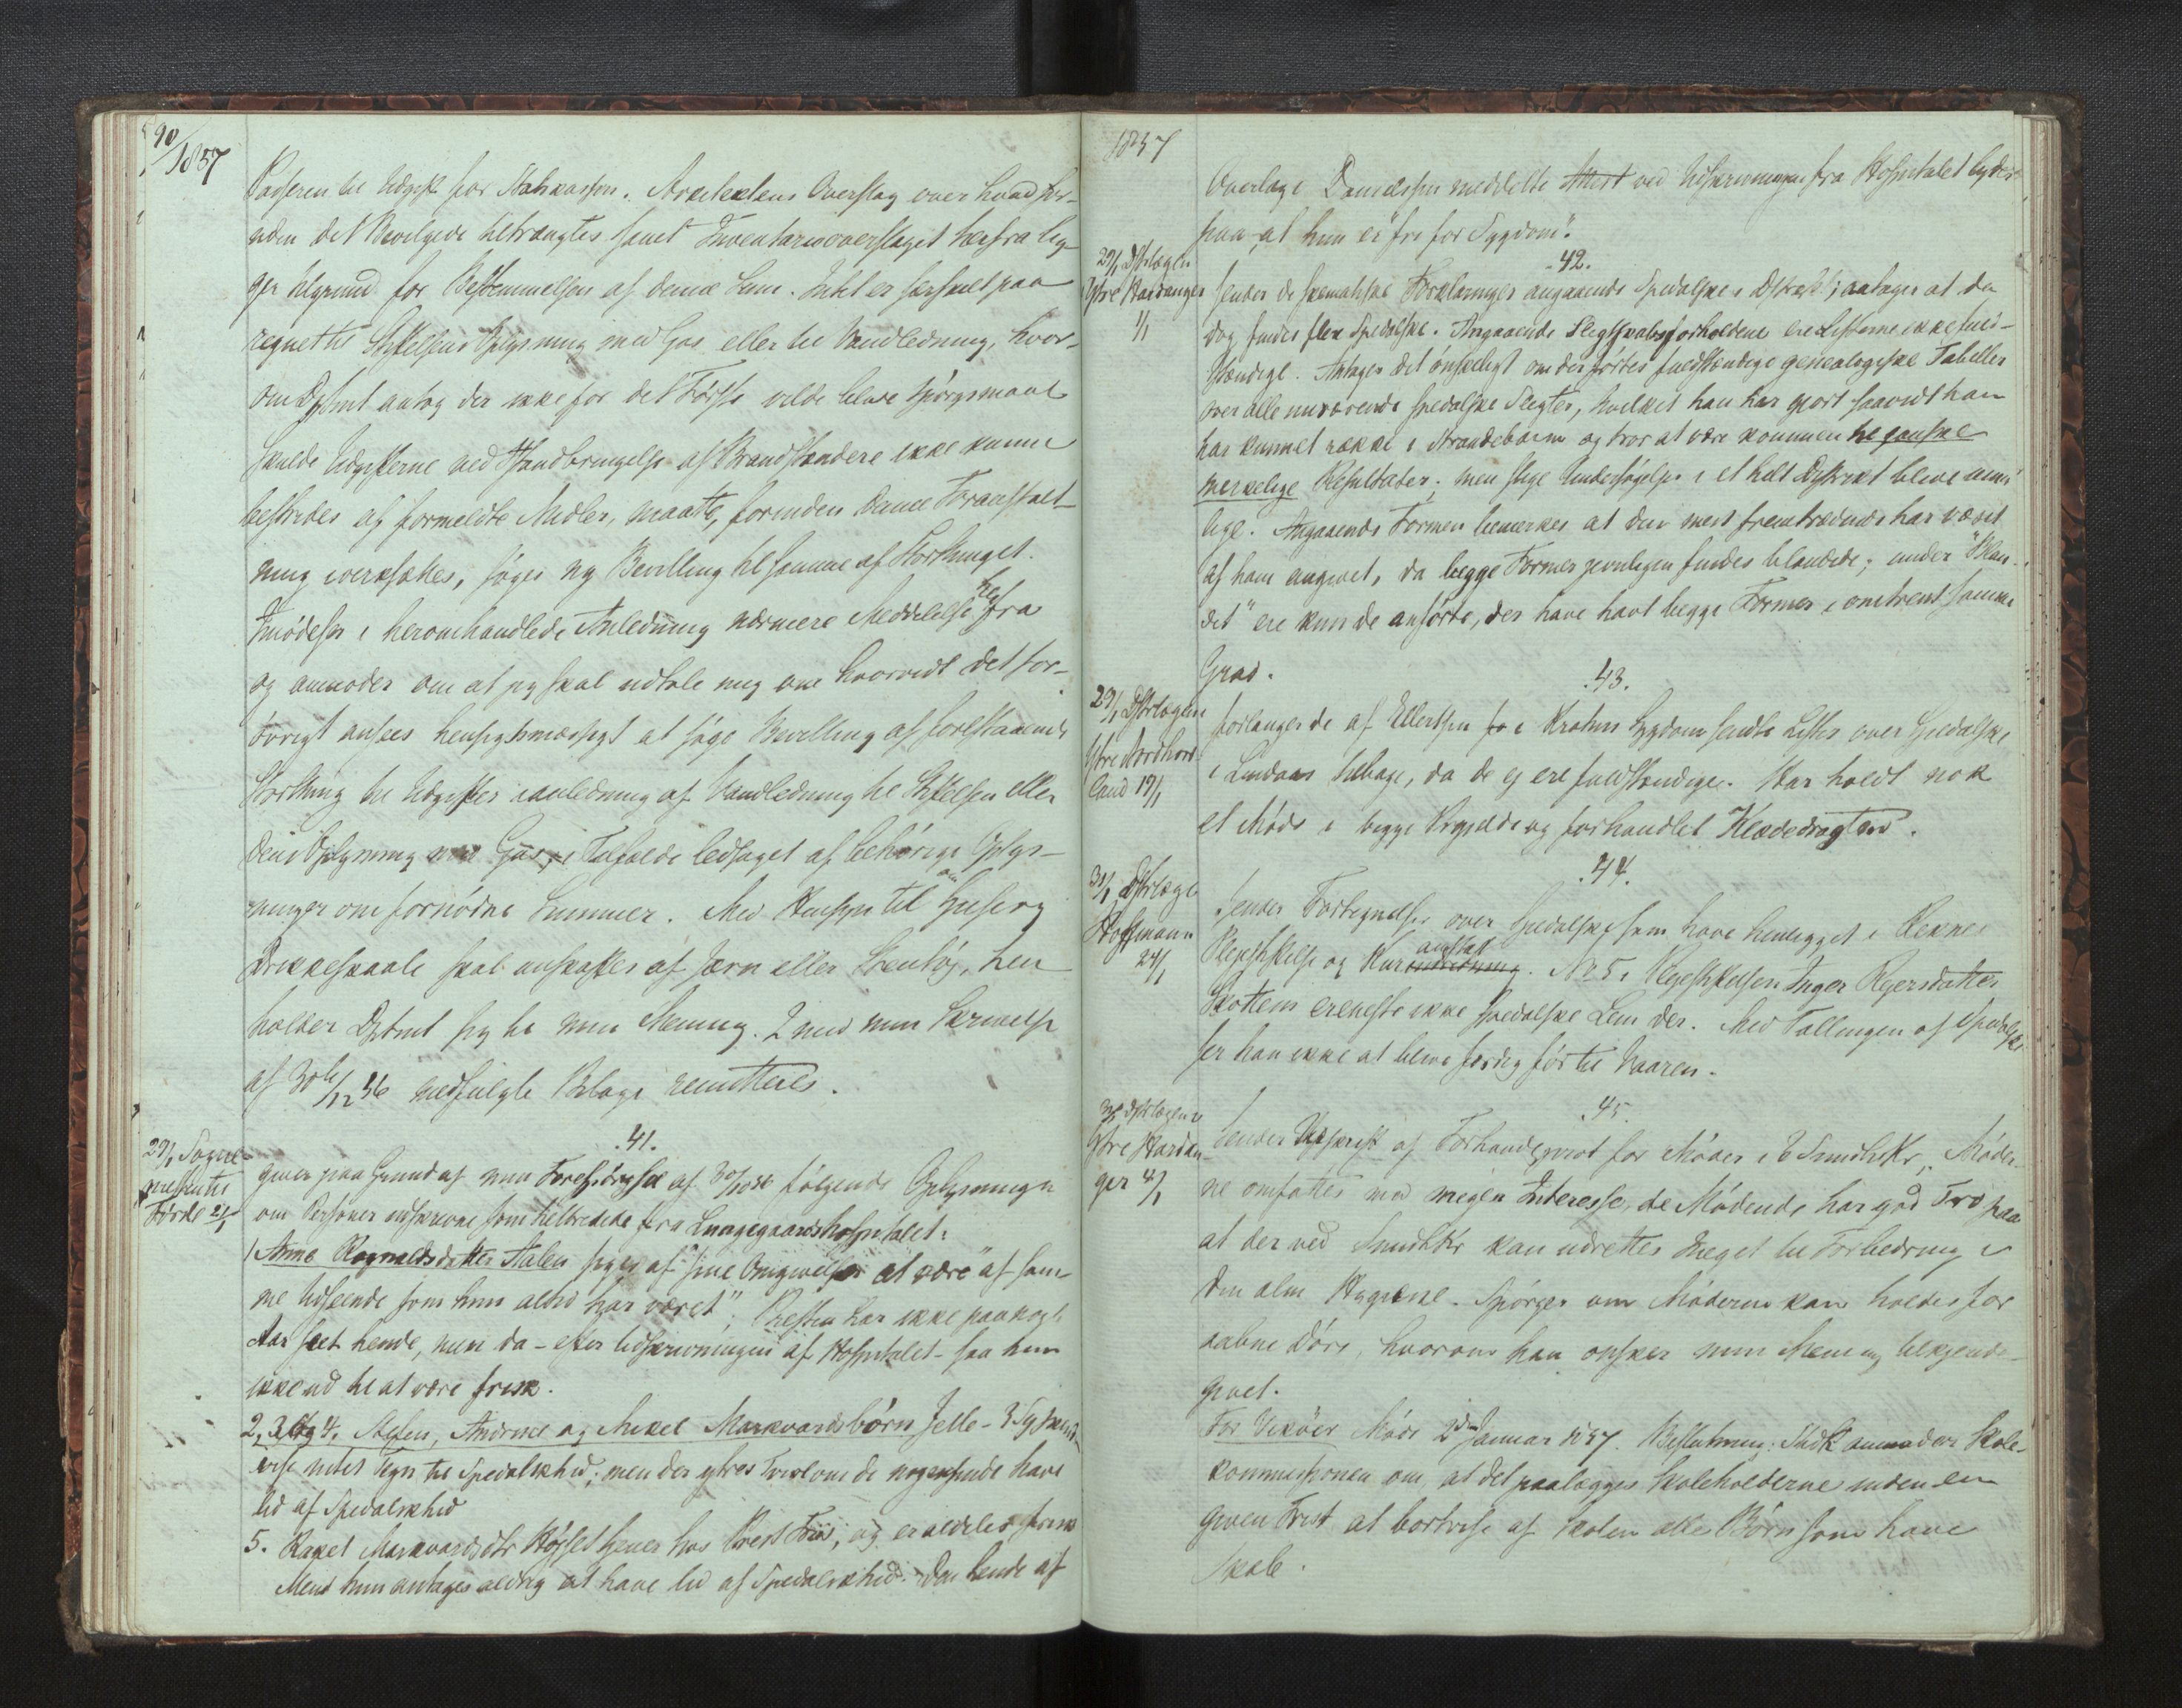 90/1857
Casseren til Udgift for Statskassen. Arkitektens Overslag over hvad for-
uden det Bevilgede tiltrængtes samt Inventarieoverslaget herfra lig-
ger tilgrund for Bestemmelsen af denne Sum. Intet er særskilt paa
regnet til Stiftelsens Oplysning med Gas eller til Vandledning, hvor-
om Dptmt antog der ikke for det Første vilde blive Spörgsmaal
skulde Udgifterne ved Istandbringelse af Brandstændere ikke kunne
bestrides af formeldte Midler, maatte, forinden denne Foranstalt-
ning iverksættes, søges ny Bevilling til samme af Storthinget.
Imødeser i heromhandlede Anledning nærmere Meddelelse herfra
og anmoder om at jeg skal udtale mig om hvorvidt det for-
övrigt ansees hensigtsmæssigt at søge Bevilling af forestaaende
Storthing til Udgifter i anledning af Vandledning til Stiftelsen eller
dens Oplysning med Gas, i Tilfælde ledsaget af behørige Oplys-
ninger om fornödne Summer. Med Hensyn til om
Drikkeskaale skal anskaffes af Jern eller Stentöj, hen-
holder Dptmt sig til min Mening. 2 med min Skrivelse
af 30te/12 56 medfulgte Bilage remitteres.
.41.
29/1 Sogne-
presten til
Förde 21/1
giver paa Grund af min Forespörgsel af 30/10 56 følgende Oplysninger
om Personer udskrevne som helbredede fra Lungegaardshospitalet:
1 Anna Ragnaldsdatter Aalen siges af sine Omgivelser at være "af sam-
me Udseende som hun altid har været"; Presten har ikke paa nogle
Aar seet hende, men da - efter Udskrivningen af Hospitalet - saa hun
ikke ud til at være frisk.
2, 3 og 4. Aesen, Andrine og Mikel Markvardsbörn Jelle - 3 Sydskende
vise intet Tegn til Spedalskhed; men der ytres Tvivl om de nogensinde have
lid af Spedalskhed
5. Rakel Markvardsdtr Højset tjener hos Prest Friis, og er aldeles frisk
Mens hun antages aldrig at have lid af Spedalskhed. Den hende af
1857
Overlæge Danielssen meddelte Attest ved Udskrivningen fra Hospitalet lyder
paa at hun er "fri for Sygdom".
.42.
29/1 Dstrlægen
Ytre Hardanger
1/1
sender de skematiske Forklaringer angaaende Spedalske i Dstrikt; antager at der
dog findes flere Spedalske. Angaaende Slegtskabsforholdene ere Listerne ikke fuld-
stændige. Antager det önskeligt om der förtes fuldstændige genealogiske Tabeller
over alle nuværende spedalske Slegter, hvilket han har gjort saavidt han
har kunnet række i Strandebarm og tror at være kommen til ganske
merkelige Resultater; men slige Undersögelser i et helt Distrikt blive umu-
lige. Angaaende Formen bemerkes at den mest fremtrædende har været
af ham angivet, da begge Former jevnligen findes blandede; under "Blan-
det" ere kun de anförte, der have havt begge Former i omtrent samme
Grad.
.43.
29/1 Dstrlægen
Ytre Nordhord-
land 19/1
forlanger de af Ellertsen i Krohns Sygdom sendte Lister over Spedalske
i Lindaas tilbage, da de ej ere fuldstændige. Har holdt nok
et Möde i begge Prgjelde og forhandlet Klædedragten.
.44.
31/1 Dstrlæge
Hoffmann
24/1
sender Fortegnelse over Spedalske som have henligget i Reknes
Plejestiftelse og Kuranstalt. No 5 i Plejestiftelsen Inger Rejersdatter
Skottem er eneste ikke spedalske Lem der. Med Tællingen af Spedalske
ser han ikke at blive færdig för til Vaaren.
.45.
31/1 Dstrlægen i
Ytre Hardan-
ger 4/1
sender Udskrift af Forhandlprot for Möder i 2 Sundhskr. Möder-
ne omfattes med megen Interesse, de Mödende har god Tro paa
at der ved Sundhkr kan udrettes Meget til Forbedring i
den alm Hygiene. Spörger om Möderne kan holdes for
aabne Döre, hvorom han önsker min Mening tilkjende-
givet.
For Vikoer Möde 2den Januar 1857. Beslutning: Shdk anmoder Skole-
kommissionen om at det paalægges Skoleholderne inden en
given Frist at bortvise af Skolen alle Börn som have
Skab.